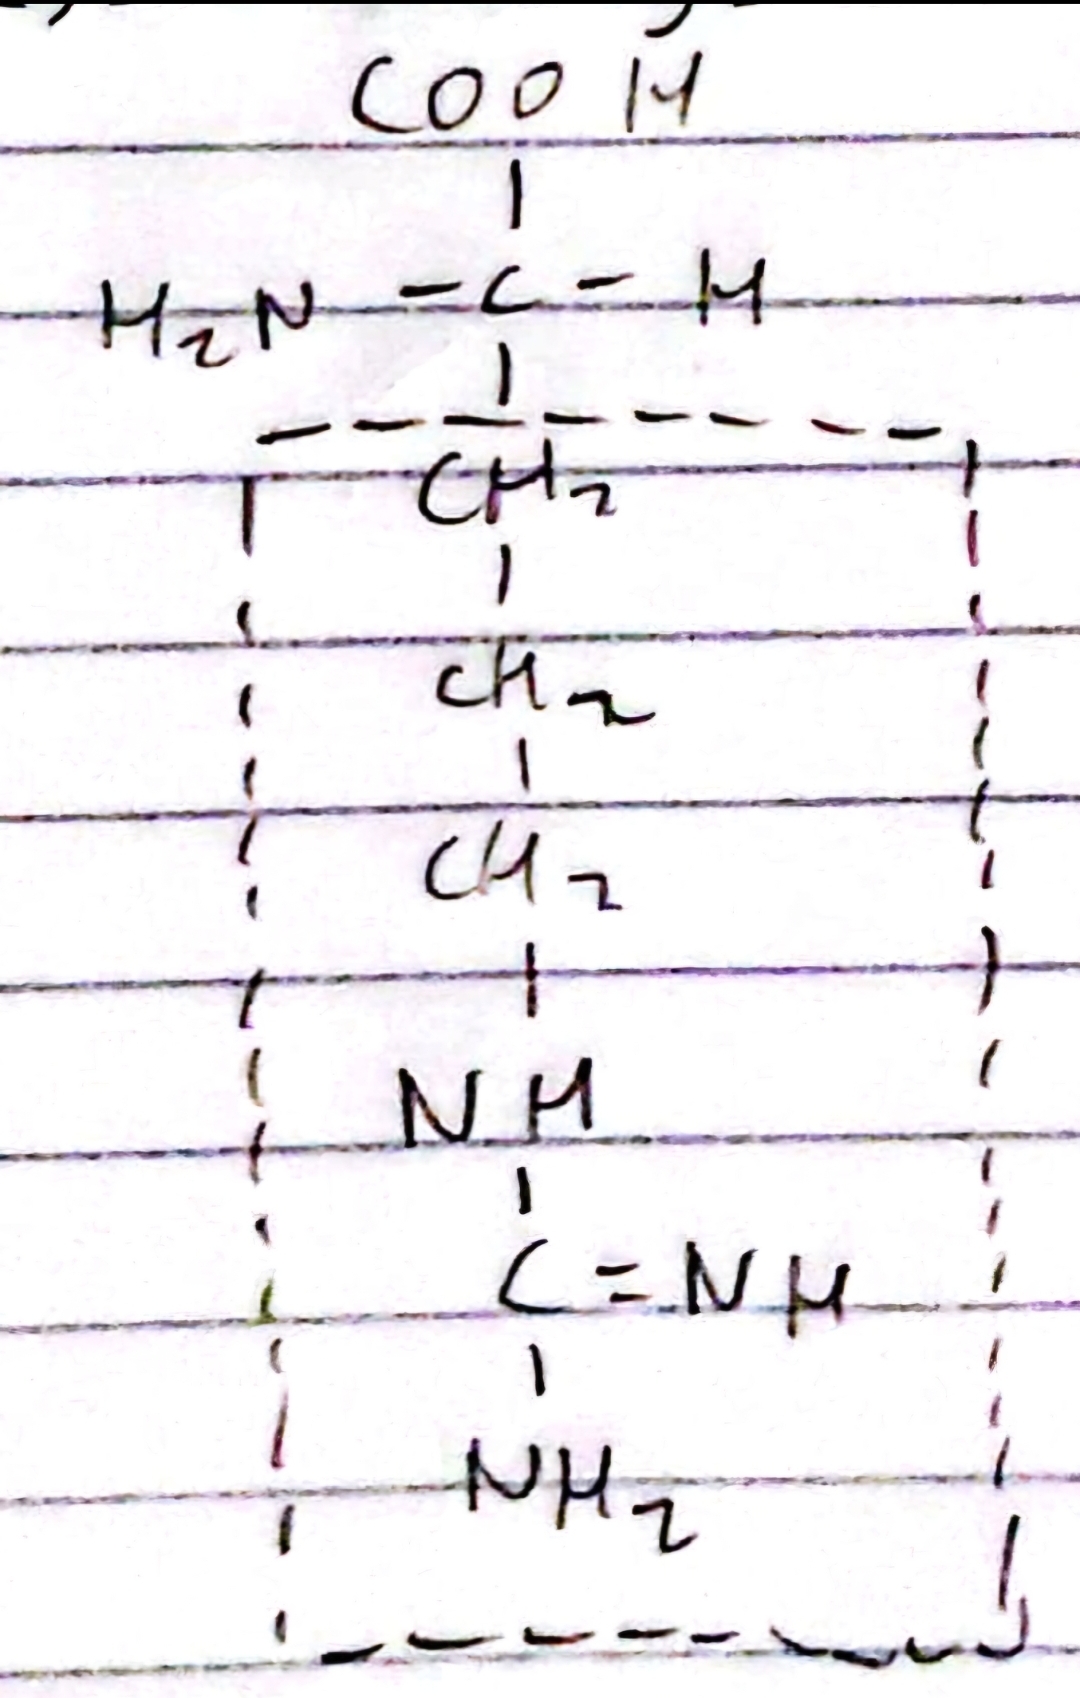 COOH
H₂N - C - H
CH₂
CH₂
CH₂
NH
C = NH
NH₂